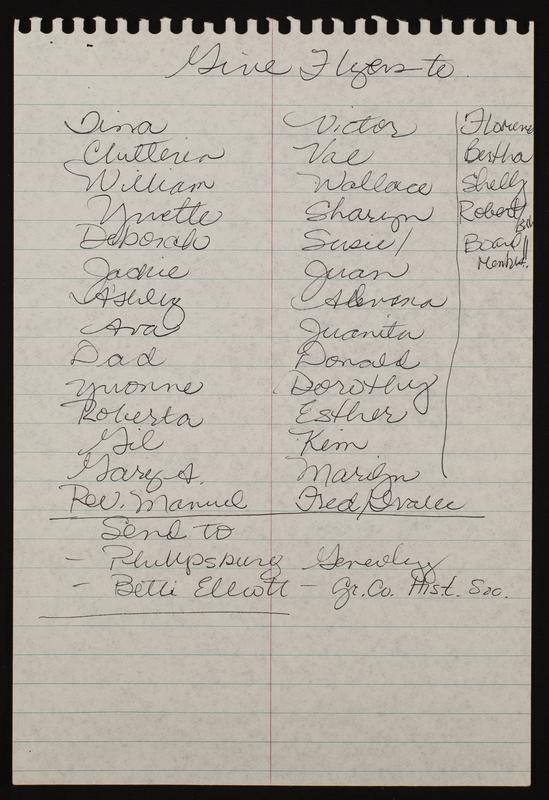 Give Flyers to
Tina
William
Yvette
Deborah
Jackie
Ashley
Ava
Dad
Yvonne
Roberta
Gil
Gary A.
Rev. Manuel
Victor
Val
Wallace
Sharyn
Susie/
Juan
Juanita
Donald
Dorothy
Esther
Kim
Marilyn
Fred/
Florene
Bertha
Shelly
Robert
Board
Memb!!
Send to
- Phillipsburg Genealogy
- Betti Elliott - Gr. Co. Hist. Soc.